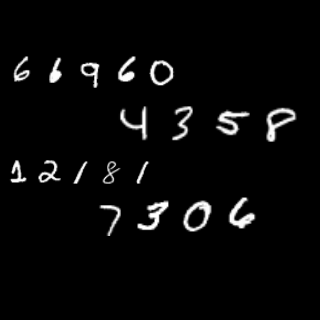 66960
4358
12181
7306